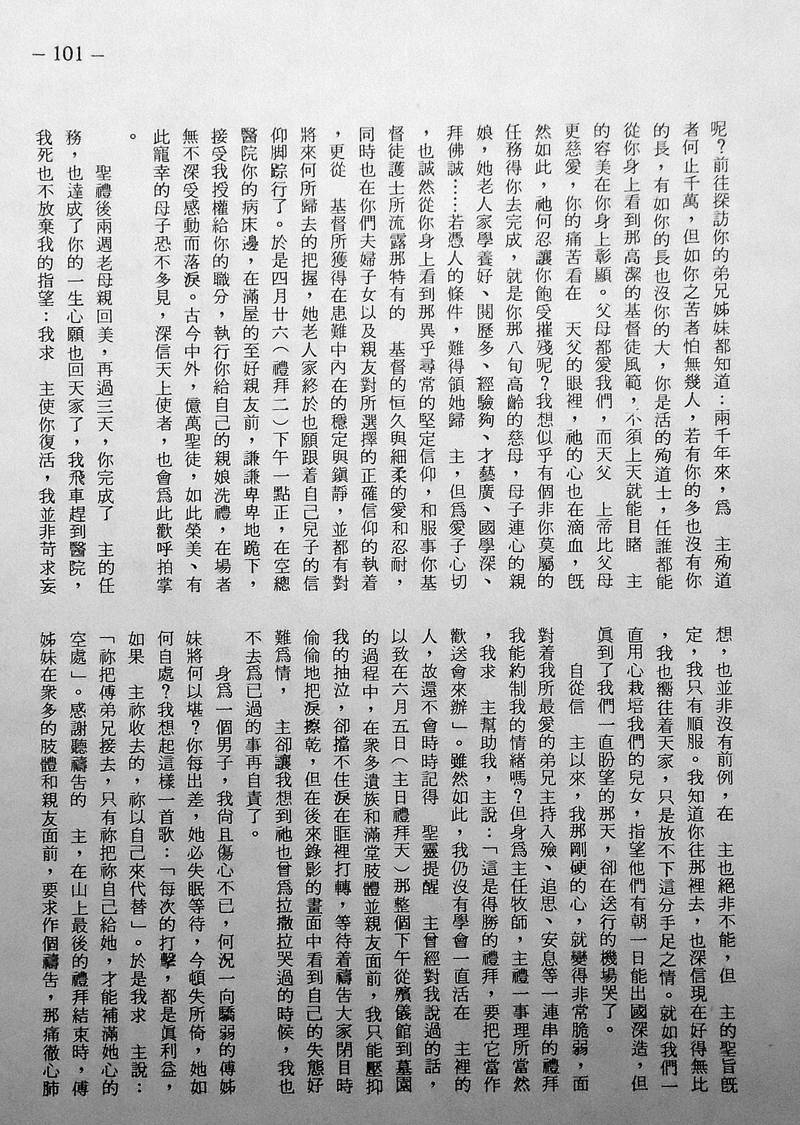 – 101 –
呢？前往探訪你的弟兄姊妹都知道：兩千年來，爲　主殉道
者何止千萬，但如你之苦者怕無幾人，若有你的多也沒有你
的長，有如你的長也沒你的大，你是活的殉道士，任誰都能
從你身上看到那高潔的基督徒風範，不須上天就能目睹　主
的容美在你身上彰顯。父母都愛我們，而天父　上帝比父母
更慈愛，你的痛苦看在　天父的眼裡，祂的心也在滴血，旣
然如此，祂何忍讓你飽受摧殘呢？我想似乎有個非你莫屬的
任務得你去完成，就是你那八旬高齡的慈母，母子連心的親
娘，她老人家學養好、閱歷多、經驗夠、才藝廣、國學深、
拜佛誠……若憑人的條件，難得領她歸　主，但爲愛子心切
，也誠然從你身上看到那異乎尋常的堅定信仰，和服事你基
督徒護士所流露那特有的　基督的恒久與細柔的愛和忍耐，
同時也在你們夫婦子女以及親友對所選擇的正確信仰的執着
，更從　基督所獲得在患難中內在的穩定與鎭靜，並都有對
將來何所歸去的把握，她老人家終於也願跟着自己兒子的信
仰脚踪行了。於是四月廿六（禮拜二）下午一點正，在空總
醫院你的病床邊，在滿屋的至好親友前，謙謙卑卑地跪下，
接受我授權給你的職分，執行你給自己的親娘洗禮，在場者
無不深受感動而落淚。古今中外，億萬聖徒，如此榮美、有
此寵幸的母子恐不多見，深信天上使者，也會爲此歡呼拍掌
。
聖禮後兩週老母親回美，再過三天，你完成了　主的任
務，也達成了你的一生心願也回天家了，我飛車趕到醫院，
我死也不放棄我的指望：我求　主使你復活，我並非苛求妄
想，也並非沒有前例，在　主也絕非不能，但　主的聖旨旣
定，我只有順服。我知道你往那裡去，也深信現在好得無比
，我也嚮往着天家，只是放不下這分手足之情。就如我們一
直用心栽培我們的兒女，指望他們有朝一日能出國深造，但
眞到了我們一直盼望的那天，卻在送行的機場哭了。
自從信　主以來，我那剛硬的心，就變得非常脆弱，面
對着我所最愛的弟兄主持入殮、追思、安息等一連串的禮拜
我能約制我的情緒嗎？但身爲主任牧師，主禮一事理所當然
，我求　主幫助我，主說：「這是得勝的禮拜，要把它當作
歡送會來辦」。雖然如此，我仍沒有學會一直活在　主裡的
人，故還不會時時記得　聖靈提醒　主曾經對我說過的話，
以致在六月五日（主日禮拜天）那整個下午從殯儀館到墓園
的過程中，在衆多遺族和滿堂肢體並親友面前，我只能壓抑
我的抽泣，卻擋不住淚在眶裡打轉，等待着禱告大家閉目時
偷偷地把淚擦乾，但在後來錄影的畫面中看到自己的失態好
難爲情，　主卻讓我想到祂也曾爲拉撒拉哭過的時候，我也
不去爲已過的事再自責了。
身爲一個男子，我尙且傷心不已，何況一向驕弱的傅姊
妹將何以堪？你每出差，她必失眠等待，今頓失所倚，她如
何自處？我想起這樣一首歌：「每次的打擊，都是眞利益，
如果　主祢收去的，祢以自己來代替」。於是我求　主說：
「祢把傅弟兄接去，只有祢把祢自己給她，才能補滿她心的
空處」。感謝聽禱吿的　主，在山上最後的禮拜結束時，傅
姊妹在衆多的肢體和親友面前，要求作個禱吿，那痛徹心肺